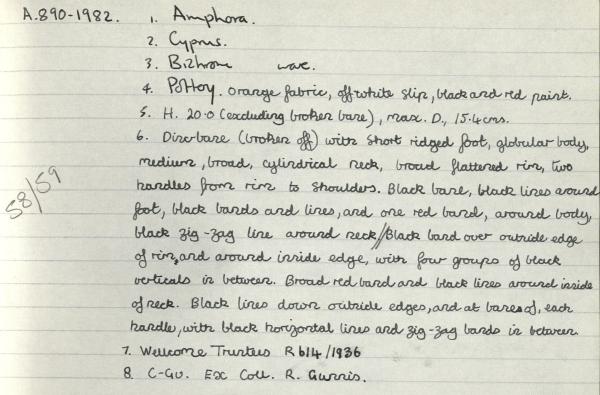 A.890-1982. 1. Amphora.
2. Cyprus.
3. Bichrome ware.
4. Pottery. orange fabric, off white slip, black and red paint.
5. H. 20.0 (excluding broken base), max. D., 15.4 cms.
6. Disc base (broken off) with short ridged foot, globular body,
medium, broad, cylindrical neck, broad flattened rim, two
handles from rim to shoulders. Black base, black lines around
foot, black bands and lines, and one red band, around body,
black zig-zag line around neck // Black band over outside edge
of rim, and around inside edge, with four groups of black
verticals in between. Broad red band and black lines around inside
of neck. Black lines down outside edges, and at bases of, each
handle, with black horizontal lines and zig-zag bands in between.
58/59
7. Wellcome Trustees R614/1936
8. C-Gu. Ex Coll. R. Gunnis.